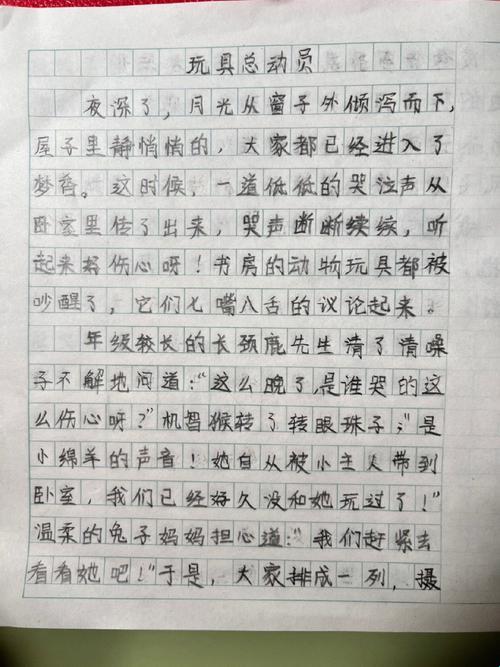 玩具总动员
夜深了，月光从窗子外倾泻而下，
屋子里静悄悄的，大家都已经进入了
梦乡。这时候，一道低低的哭泣声从
卧室里传了出来，哭声断断续续，听
起来好伤心呀！书房的动物玩具都被
吵醒了，它们七嘴八舌的议论起来。
年级较长的长颈鹿先生清了清嗓
子不解地问道：“这么晚了，是谁哭的这
么伤心呀？”机智猴转了转眼珠子：“是
小绵羊的声音！她自从被小主人带到
卧室，我们已经好久没和她玩过了！”
温柔的兔子妈妈担心道：“我们赶紧去
看看她吧！”于是，大家排成一列，摄